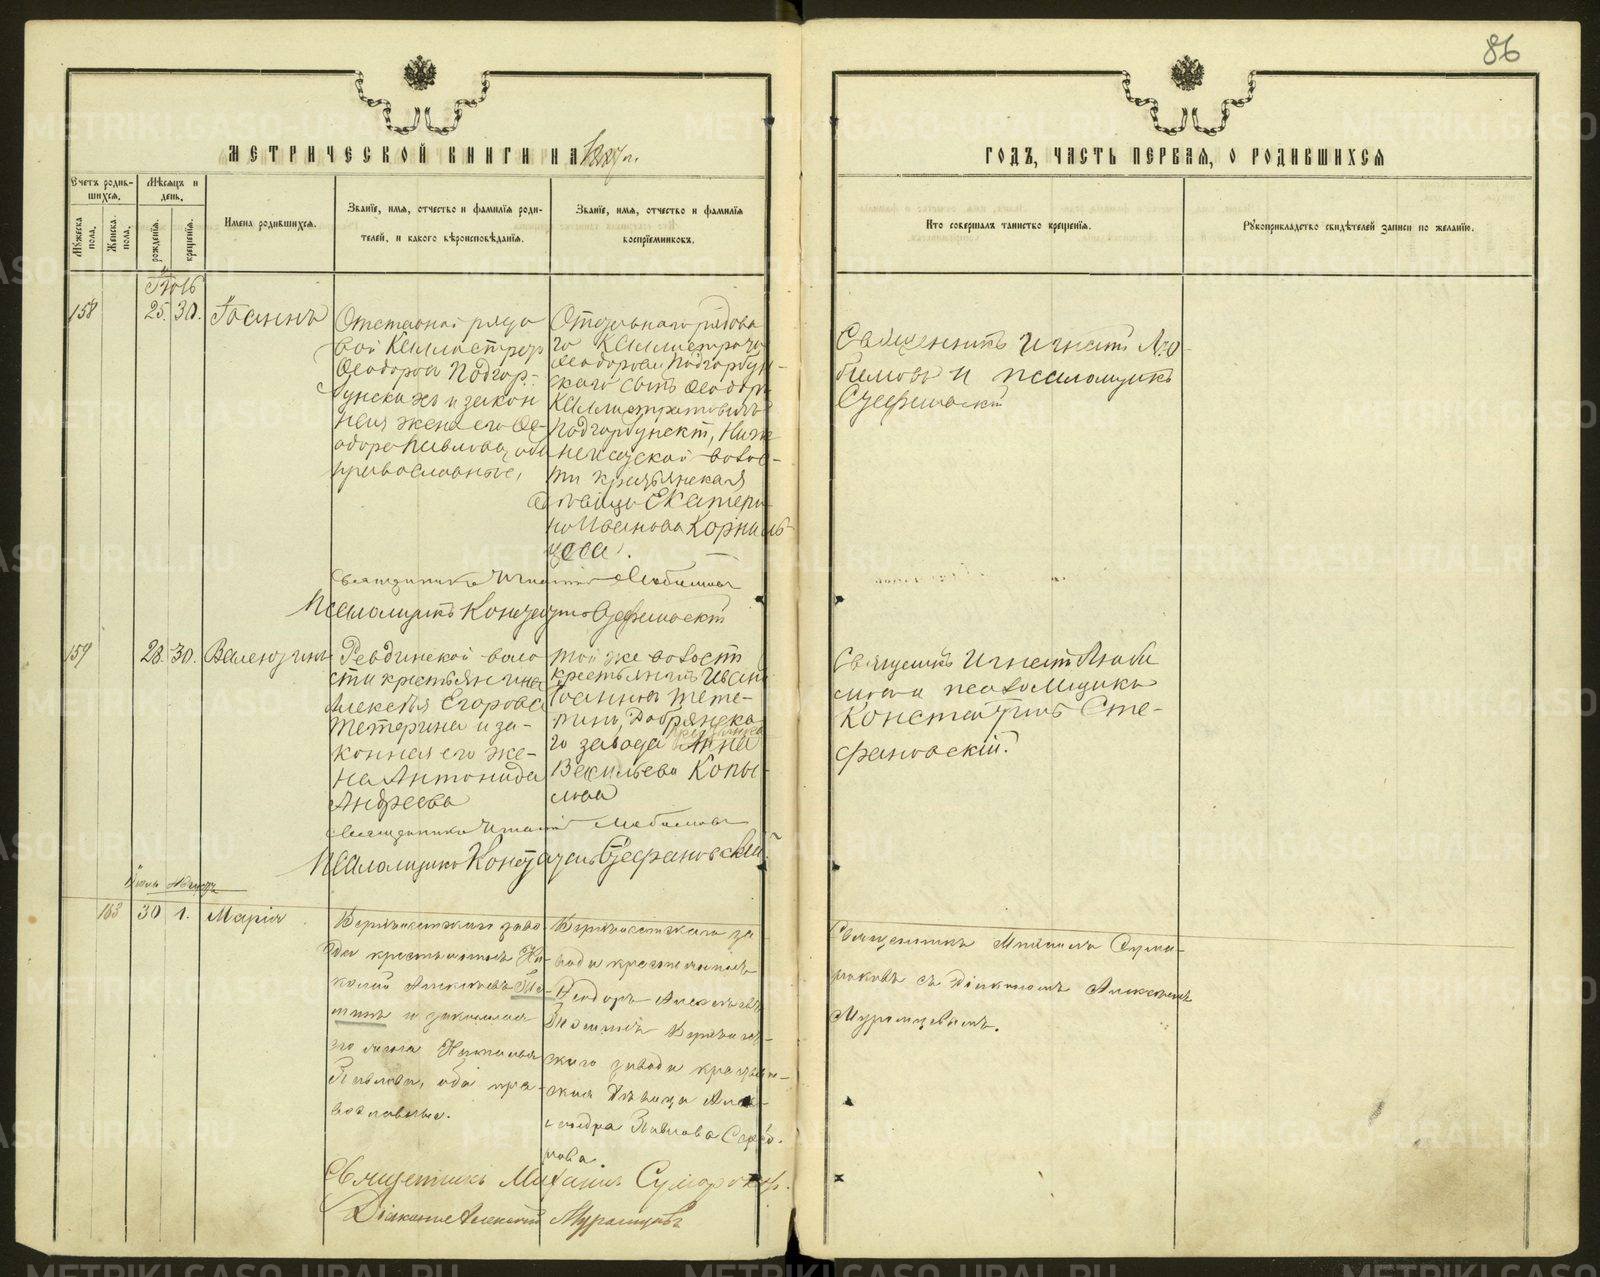 86
МЕТРИЧЕСКОЙ КНИГИ НА 1887 г.
ГОДЪ, ЧАСТЬ ПЕРВАЯ, О РОДИВШИХСЯ
Счетъ родив-
шихся.
Мѣсяцъ и
день.
Мужеска
пола.
Женска
пола.
рожденія.
крещенія.
Имена родившихся.
Званіе, имя, отчество и фамилія роди-
телей, и какого вѣроисповѣданія.
Званіе, имя, отчество и фамилія
воспріемниковъ.
Кто совершалъ таинство крещенія.
Рукоприкладство свидѣтелей записи по желанію.
158
25. 30.
Іоаннъ
Отставной рядо
вой Каллистратъ
Ѳеодоровъ Подгор-
бунскихъ и закон
ная жена его Ѳе-
одора Павлова, оба
православные,
Отставнаго рядова
го Каллистрата
Ѳеодорова Подгорбун-
скаго сынъ Ѳеодоръ
Каллистратовичъ
Подгорбунскій, Ниж
неисетской волос-
ти крестьянская
дѣвица Екатери
на Иванова Корниль-
цева.
Священникъ Игнатій Лю-
бимовъ и псаломщикъ
Стефановскій
Священникъ Игнатій Любимовъ
Псаломщикъ Константинъ Стефановскій
159
28. 30.
Валентинъ
Ревдинской воло
сти крестьянинъ
Алексѣй Егоровъ
Тетеринъ и за-
конная его же-
на Антонида
Андреева
Той же волости
крестьянинъ Иванъ
Іоанновъ Тете-
ринъ, Добрянска
го завода
Анна
Васильева Копы-
лова
Священникъ Игнатій Люби
мовъ и псаломщикъ
Константинъ Сте-
фановскій.
Священникъ Игнатій Любимовъ
Псаломщикъ Константинъ Стефановскій.
163
30 1.
Марія
Верхъисетскаго заво
да крестьянинъ Ни-
колай Алексѣевъ
и законная
его жена Наталья
Павлова, оба пра-
вославные.
Верхъисетскаго за
вода крестьянинъ
Ѳеодоръ Алексѣевъ
Верхъисет-
скаго завода крестьян-
ская дѣвица Алек-
сандра Павлова
Священникъ Михаилъ Сума-
роковъ съ діакономъ Алексѣемъ
Муромцевымъ.
Священникъ Михаилъ Сумароковъ.
Діаконъ Алексѣй Муромцевъ